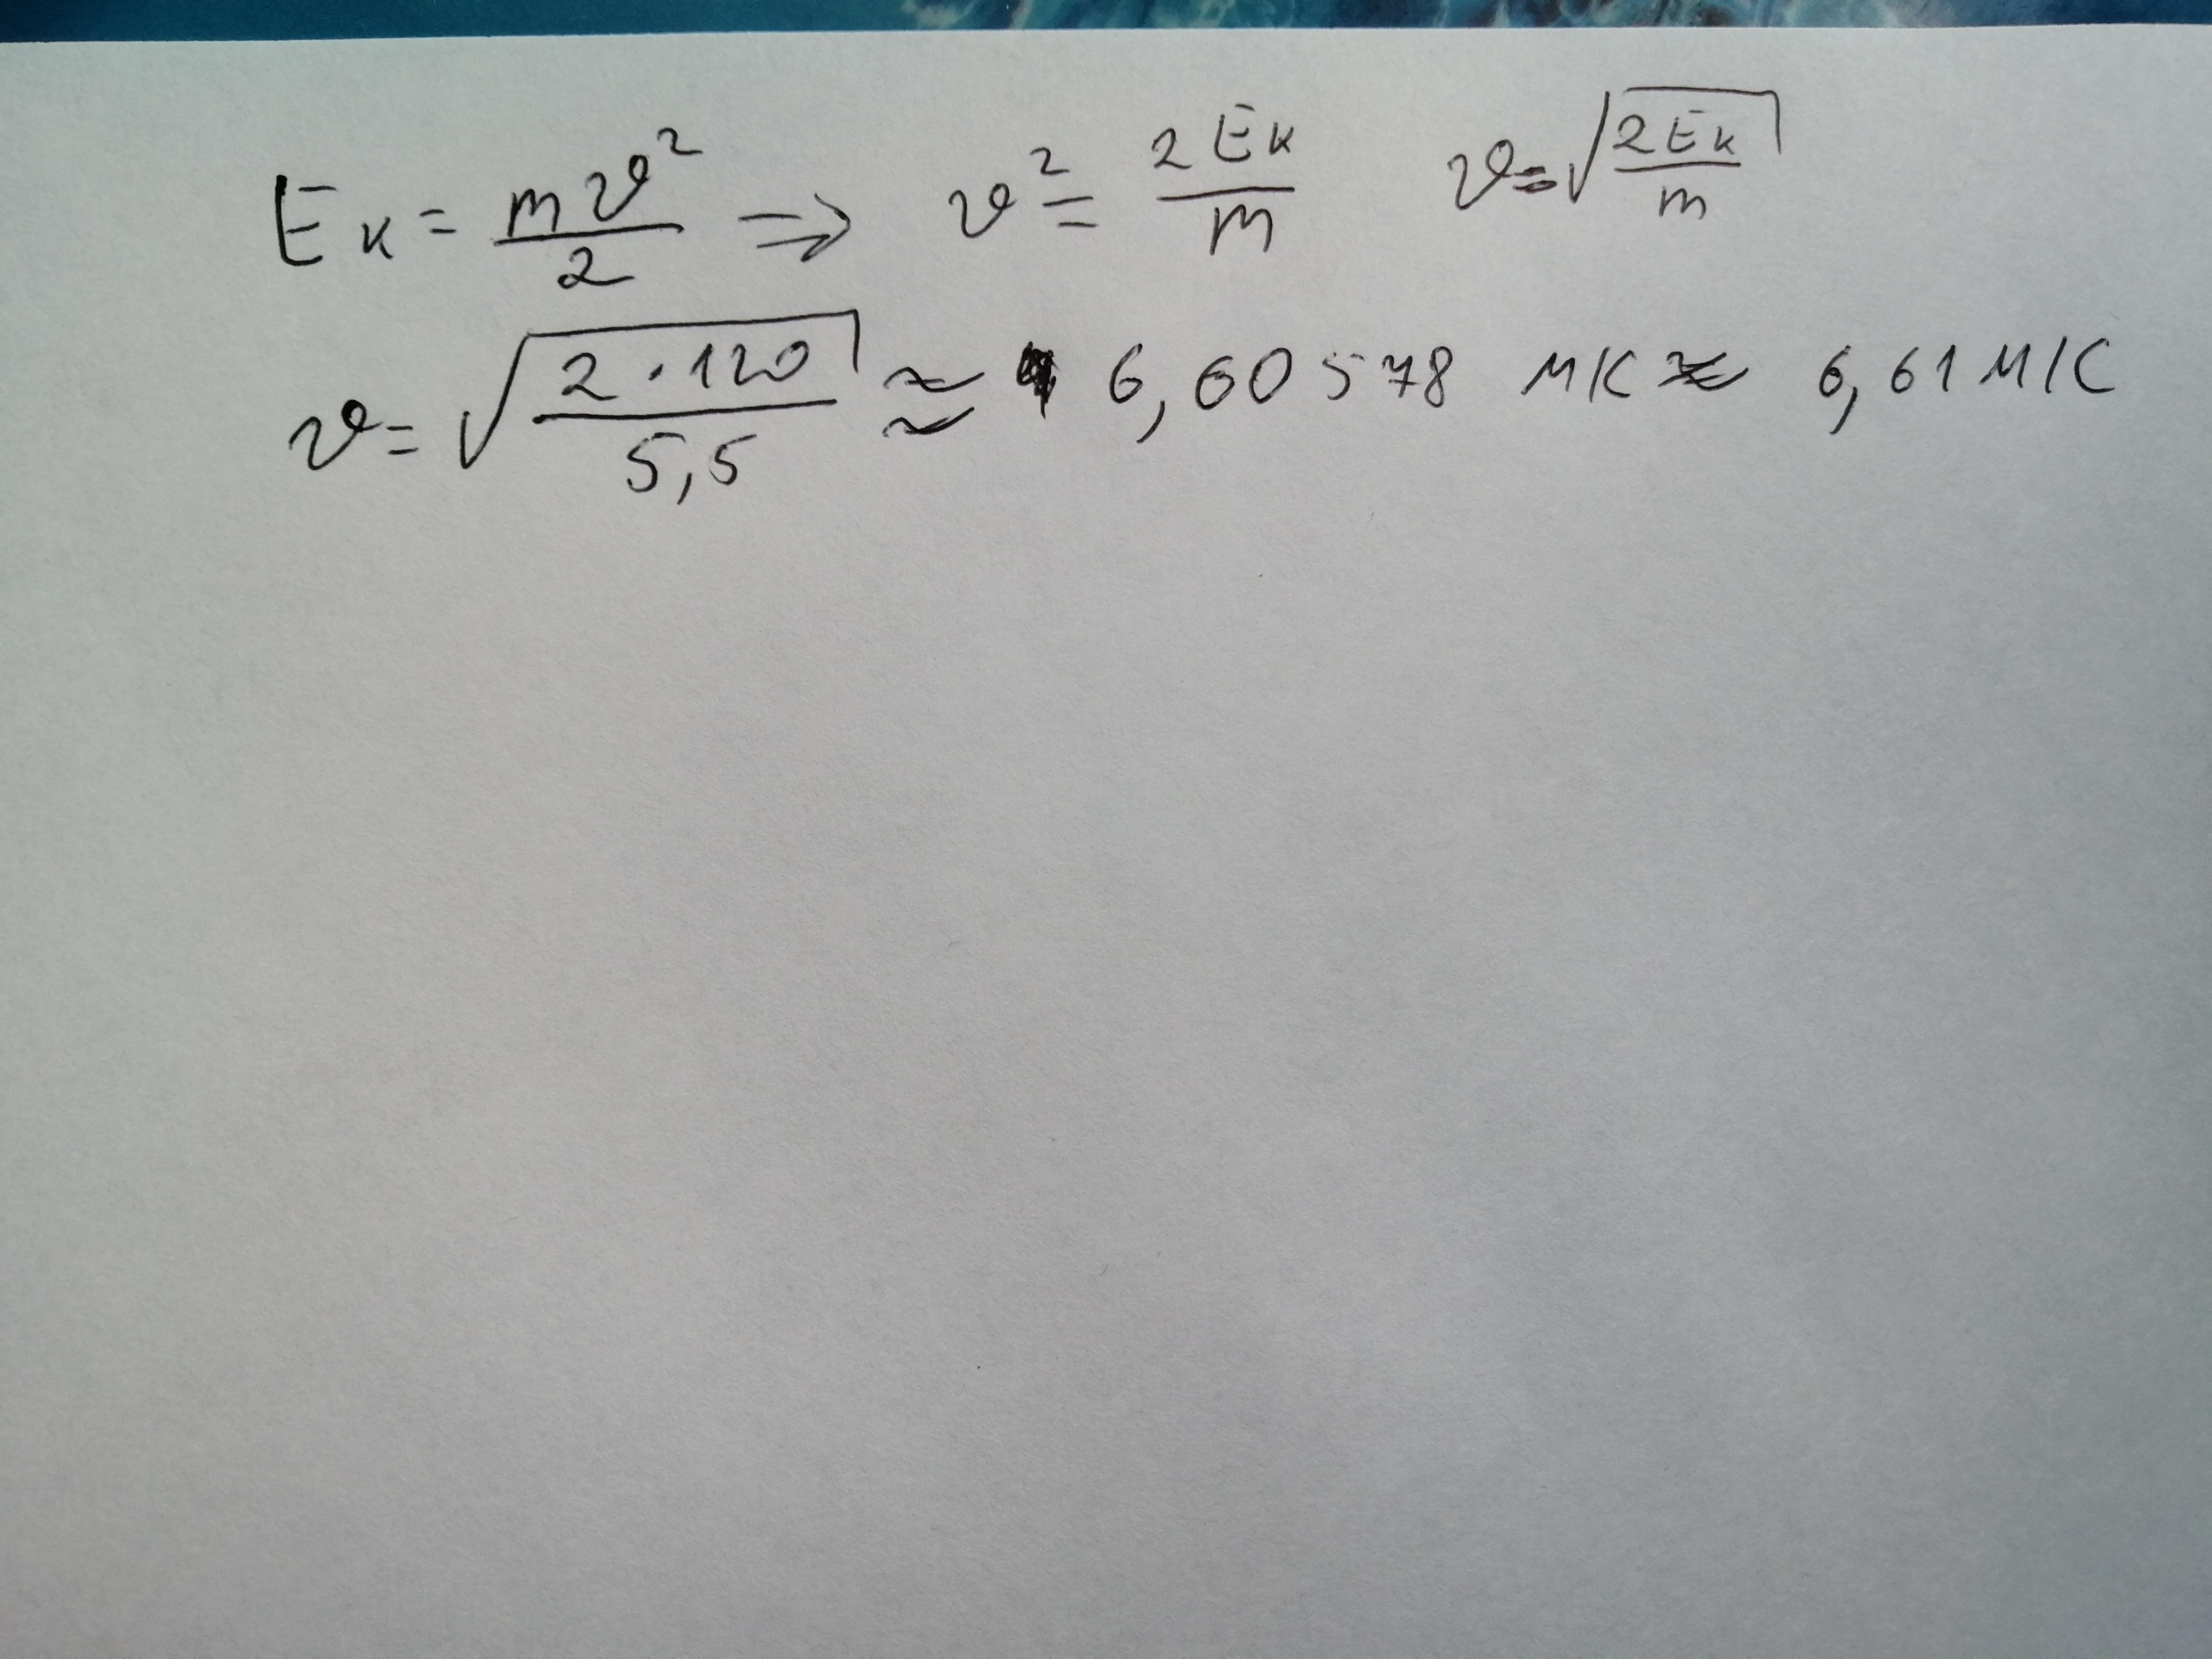 Eк = mv²/2 => v² = 2Eк/m v = √(2Eк/m)
v = √(2·120/5,5) ≈ 6,60578 м/с ≈ 6,61 м/с